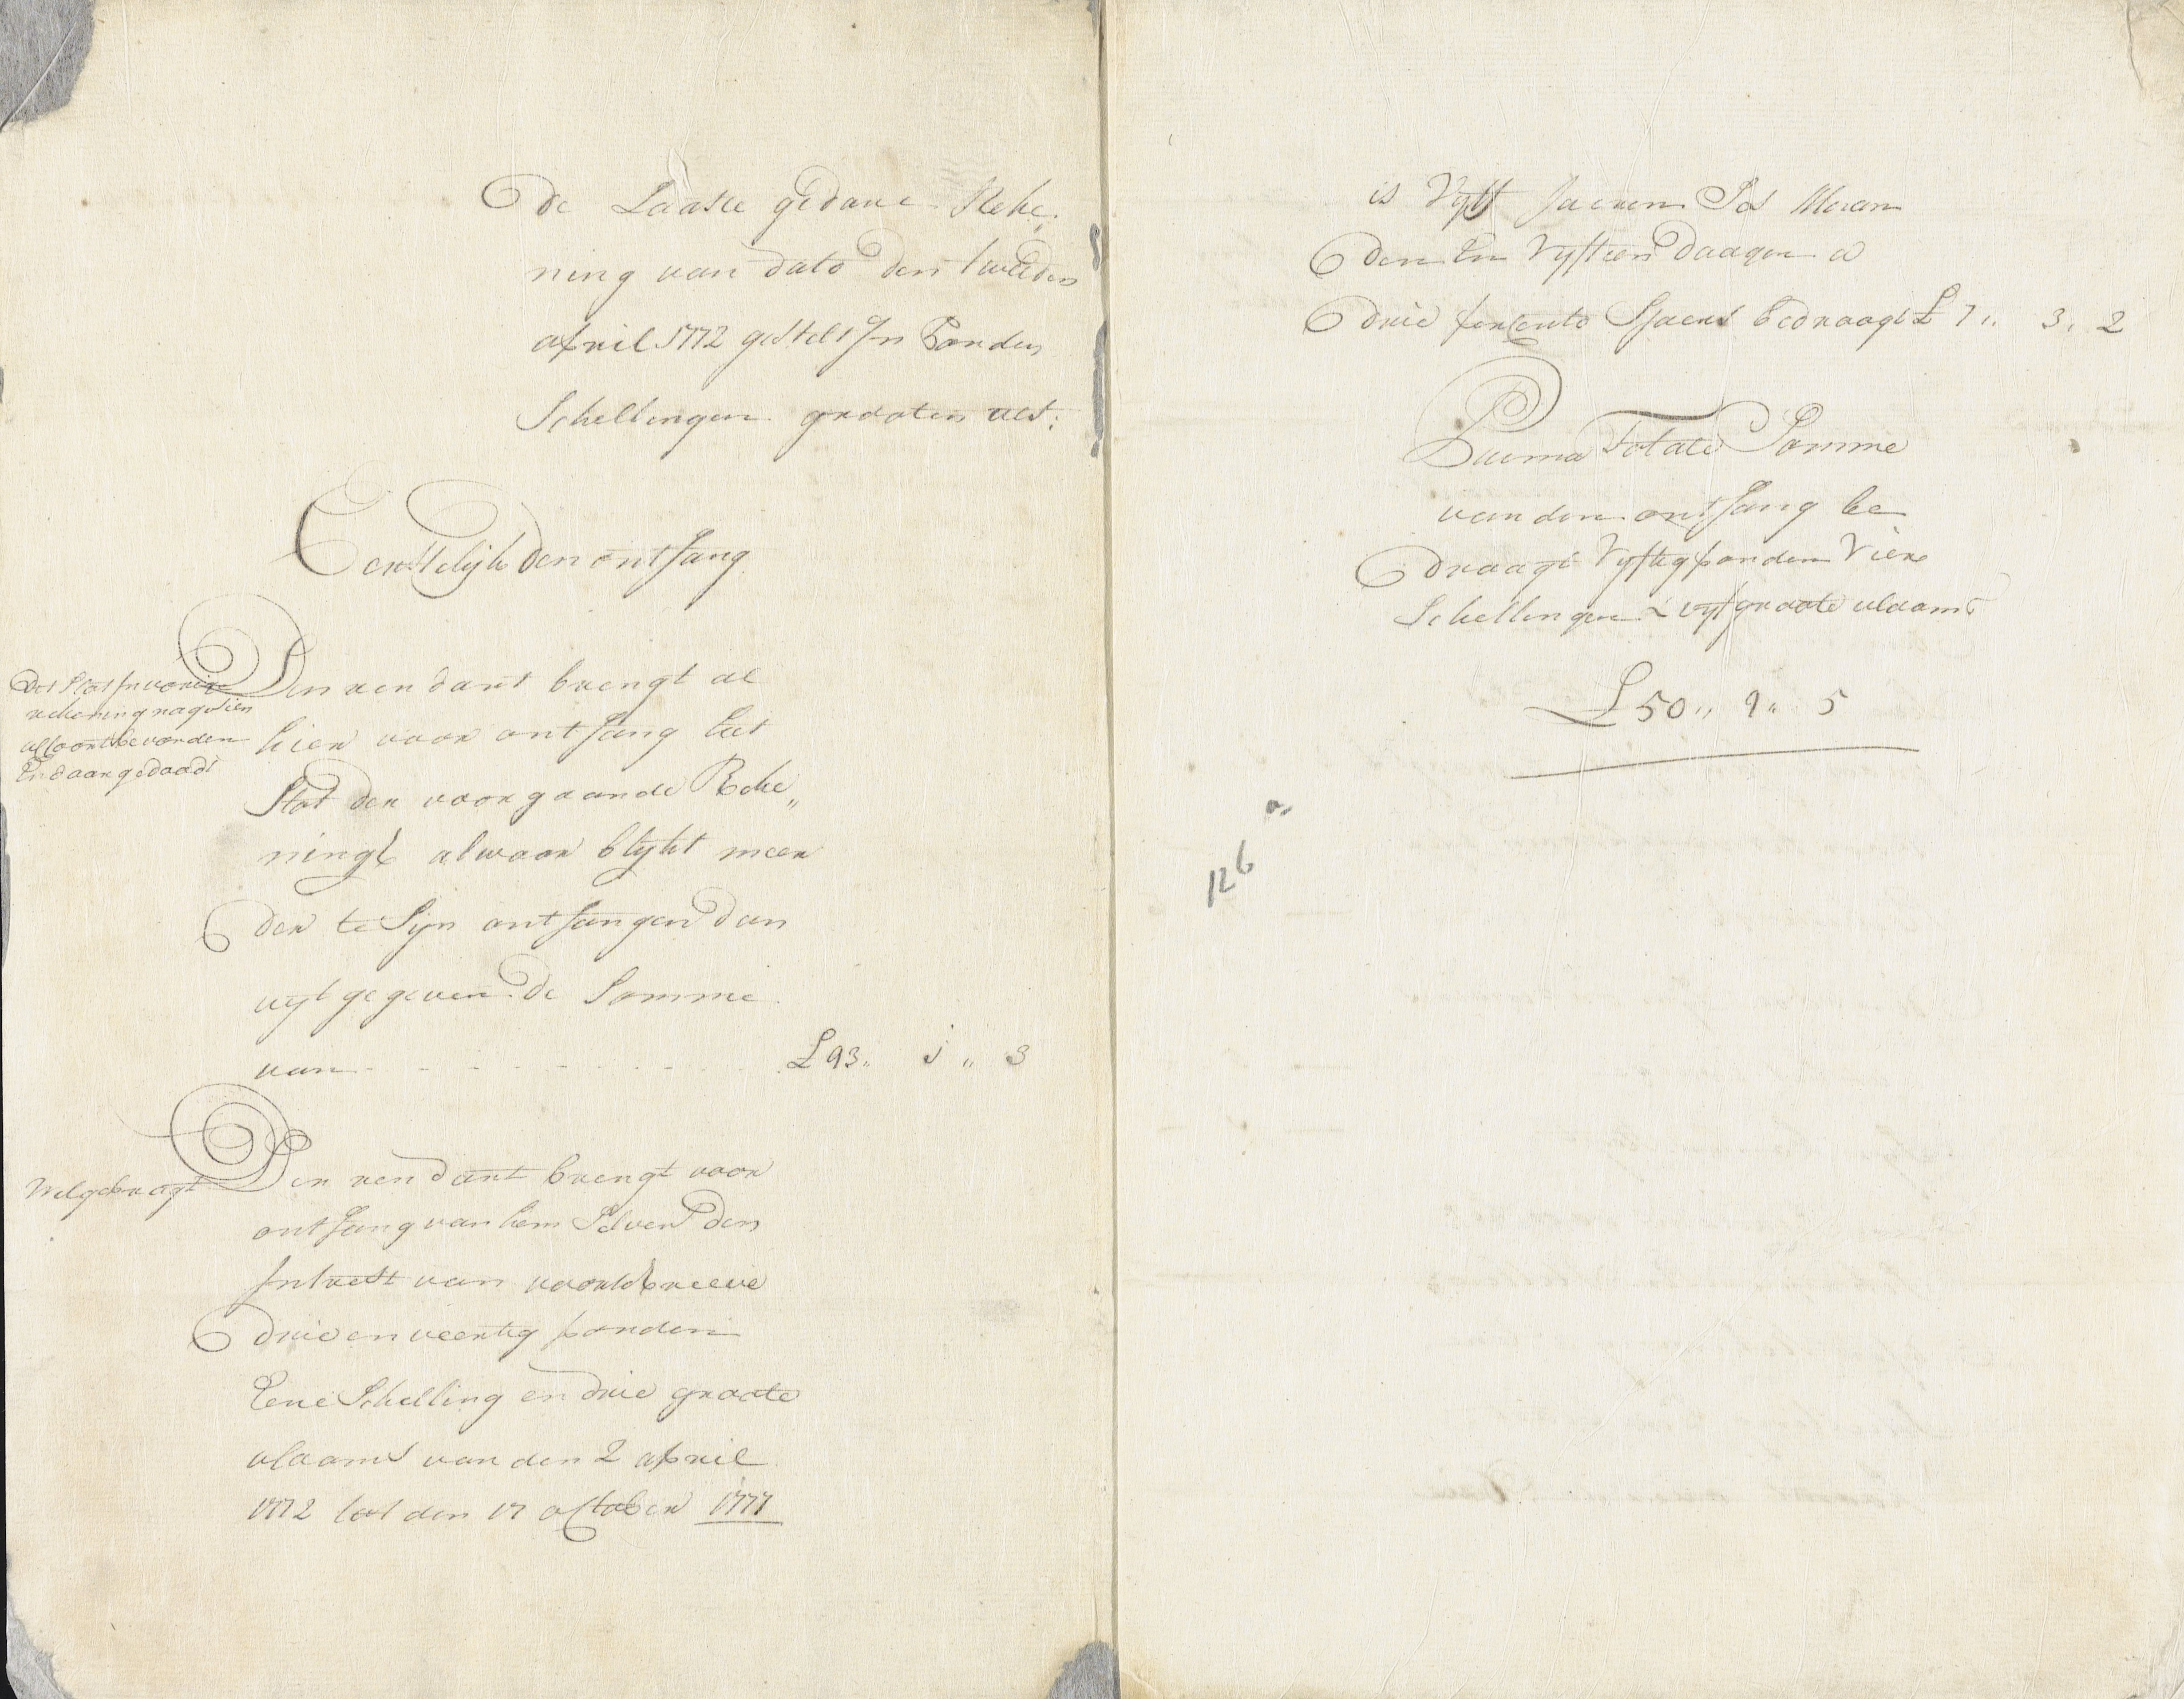 de Laaste gedane Reke„
ning van dato den tweeden
april 1772 gestelt In Ponden
Schellingen grooten vls:
Eerstelijk den ontfang
Den rendant brengt al
hier voor ontfang het
Slot der voorgaande Reke„
ningh alwaar blykt meer
der te Sijn ontfangen dan
uytgegeven de Somme
van - - - - - - - - £ 43„ 1„ 3
Het Slot In vorige
rekening nagesien
alsoo bevonden
En daar gedaadt
Den rendant brengt voor
ontfang van hem Selven den
Intrest van voorschreeve
drie en veertig ponden
Eene Schelling en drie groote
vlaams van den 2 april
1772 tot den 17 october 1777
Welgebragt
is Vyff Jaeren Ses Maan
den En Vyftien daagen a
drie percento Sjaers bedraagt £ 7„ 3„ 2
Suma Totale Somme
van den ontfang be
draagt Vyftig ponden Vier
Schellingen & vyf groote vlaams
£ 50„ 4„ 5
126